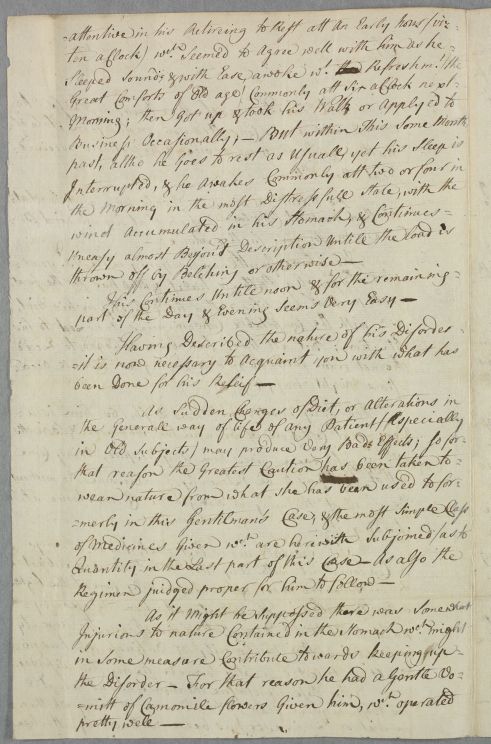 attentive in his Retireing to Rest att An Early hour / six=
ten a Clock / wch. Seemed to Agree well with him as he=
Sleeped Sound; & with Ease, awoke wt. Refreshmt. / the
Great Comforts of Old age / Commonly att Six a Clock next=
Morning; then Got up & took his Walk or Applyed to
Business Occasionally; — But within this Some Month
past, altho he Goes to rest as Usuall, yet his Sleep is
Interrupted, & he Awakes Commonly att two or four in
the Morning in the most Distressfull State; with the
wind Accumulated in his Stomach, & Continues=
Uneasy almost Beyond Description Untile the Load is
thrown off by Belching or otherwise —
This Continues Untile noon & for the remaining=
part of the Day & Evening Seems Very Easy —
Having Described the nature of his Disorder=
=it is now necessary to Acquaint you with what has
been Done for his Releif —
As Sudden Changes of Diet, or Alterations in
the Generall way of life of any Patient / Especially
in Old Subjects / may produce Very Bade Effects; so for=
that reason the Greatest Caution has been taken to=
wean nature from what she has been used to for=
=merly in this Gentilman's Case, & the most Simple Class
of Medicines Given wch. are herewith Subjoined / as to
Quantity in the Last part of this Case — as also the
Regimen judged proper for him to follow —
As it might be Suppossed there was Somewhat
Injurious to nature Contained in the Stomach wch. might
in some measure Contribute towards keeping up=
the Disorder — For that reason he had a Gentle Vo=
=mitt of Camomile flowers Given him, wch. operated
pretty well —